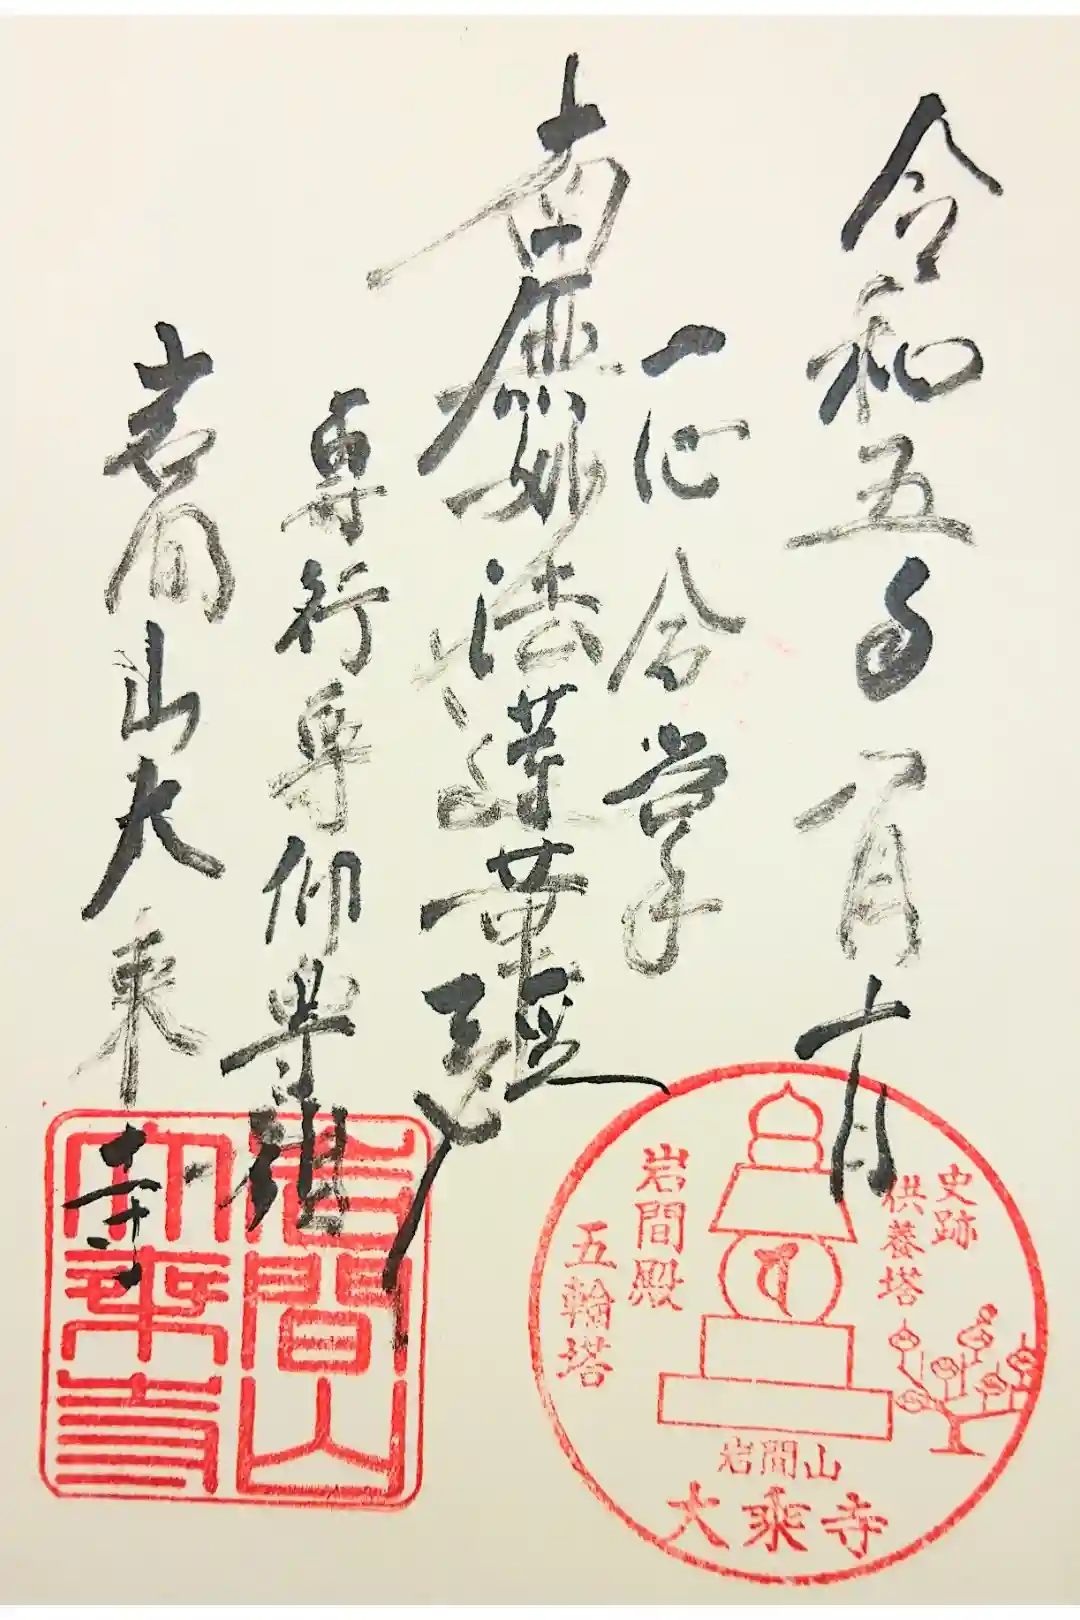 令和五年一月十一日
一心合掌
南無妙法蓮華経
専行専仰専唱
岩間山大乗寺
岩間山
大乗寺
史跡
供養塔
岩間殿
五輪塔
岩間山
大乗寺